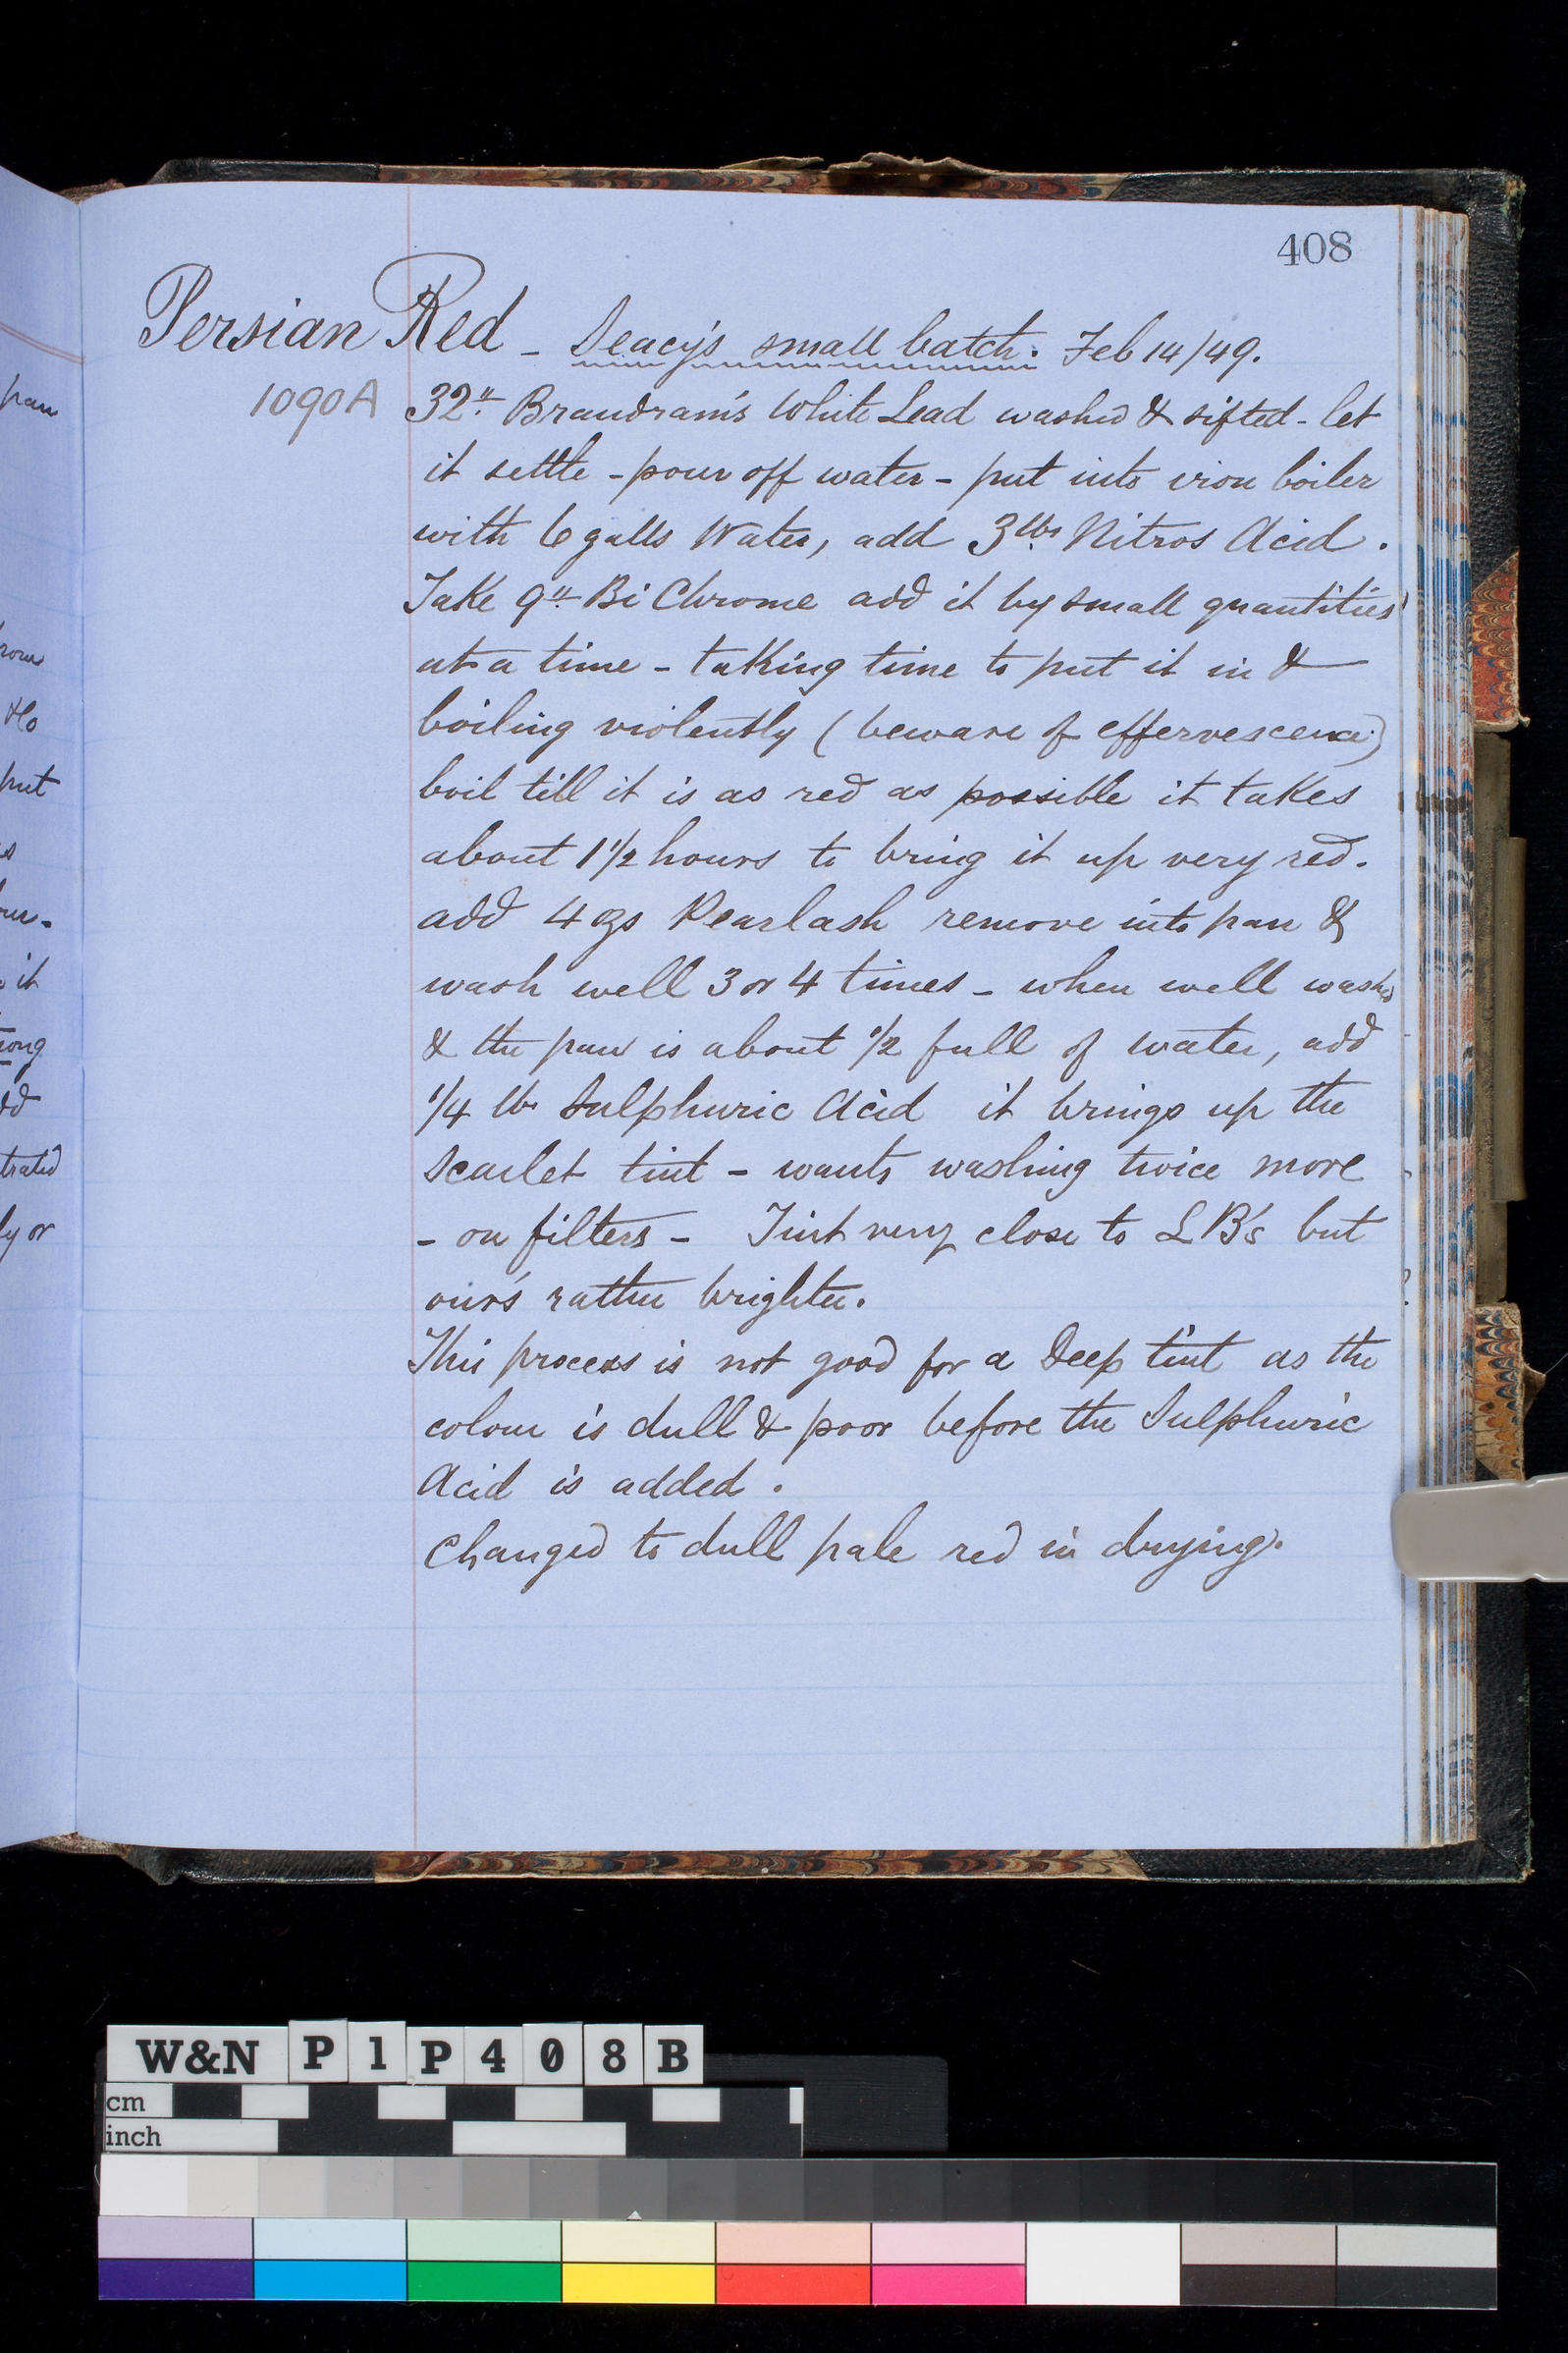 408
Persian Red - Deacy's small batch. Feb 14/49.
1090A
32" Brandram's White Lead washed & sifted - let
it settle - pour off water - put into iron boiler
with 6 galls Water, add 3 lbs Nitros Acid.
Take 9" Bi Chrome add it by small quantities
at a time - taking time to put it in &
boiling violently (beware of effervescence)
boil till it is as red as possible it takes
about 1 1/2 hours to bring it up very red.
add 4 ozs Pearlash remove into pan &
wash well 3 or 4 times - when well washed
& the pan is about 1/2 full of water, add
1/4 lb Sulphuric Acid it brings up the
Scarlet tint - wants washing twice more
- on filters - Tint very close to LB's but
our's rather brighter.
This process is not good for a Deep tint as the
colour is dull & poor before the Sulphuric
Acid is added.
Changed to dull pale red in drying.
pan
put
it
ly or
W&N P1P408B
cm
inch